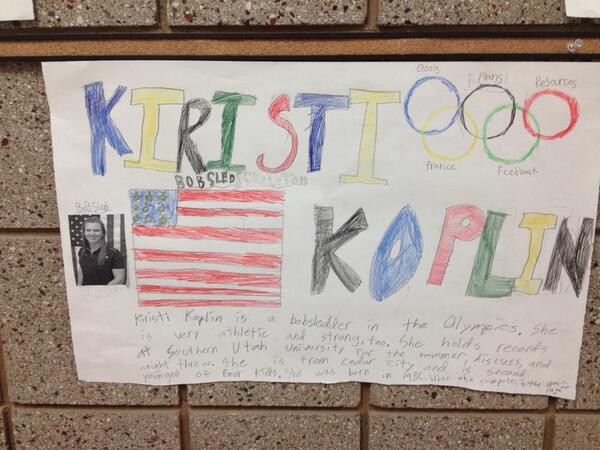 Goals
Plans
Resources
Pratice
Feedback
KIRISTI
BOBSLED SCKELETON
KOPLIN
BobSled
Kirsti Koplin is a bobsledder in the Olympics. She
is very athletic and strong, too. She holds records
at Southern Utah University for the hammer, discuss, and
waight throw. She is from cedar city and is second
youngest of four kids. She was born in 1986. What she competes